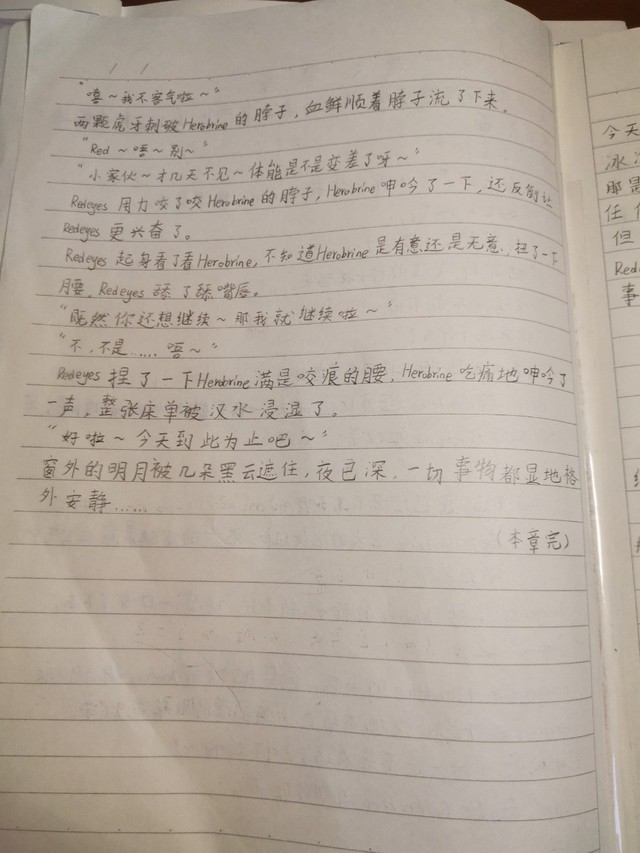 “嘻～我不客气啦～”
两颗虎牙刺破Herobrine的脖子，血鲜顺着脖子流了下来。
“Red～唔～别～”
“小家伙～才几天不见～体能是不是变差了呀～”
Redeyes用力咬了咬Herobrine的脖子，Herobrine呻吟了一下，还反倒让
Redeyes更兴奋了。
Redeyes起身看了看Herobrine，不知道Herobrine是有意还是无意，扭了一下
腰，Redeyes舔了舔嘴唇。
“既然你还想继续～那我就继续啦～”
“不，不是……唔～”
Redeyes捏了一下Herobrine满是咬痕的腰，Herobrine吃痛地呻吟了
一声，整张床单被汉水浸湿了。
“好啦～今天到此为止吧～”
窗外的明月被几朵黑云遮住，夜已深，一切事物都显地格
外安静……
（本章完）
今天
那是
任
但
Red
事